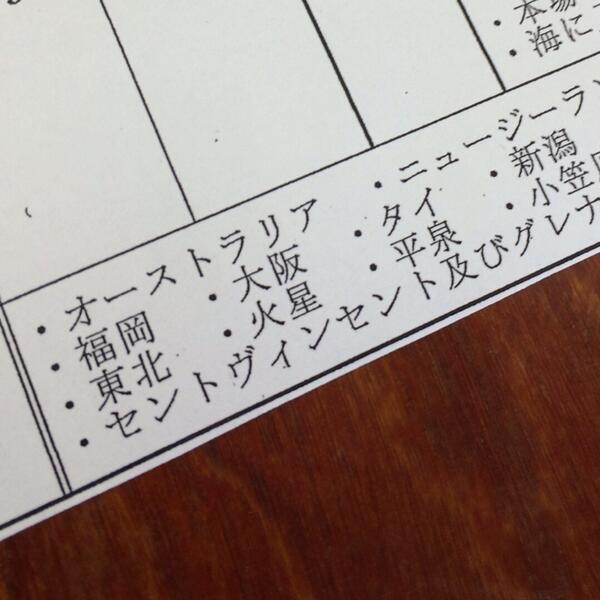 ・海に
・オーストラリア ・ニュージーラン
・福岡 ・大阪 ・タイ ・新潟
・東北 ・火星 ・平泉 ・小笠
・セントヴィンセント及びグレナ